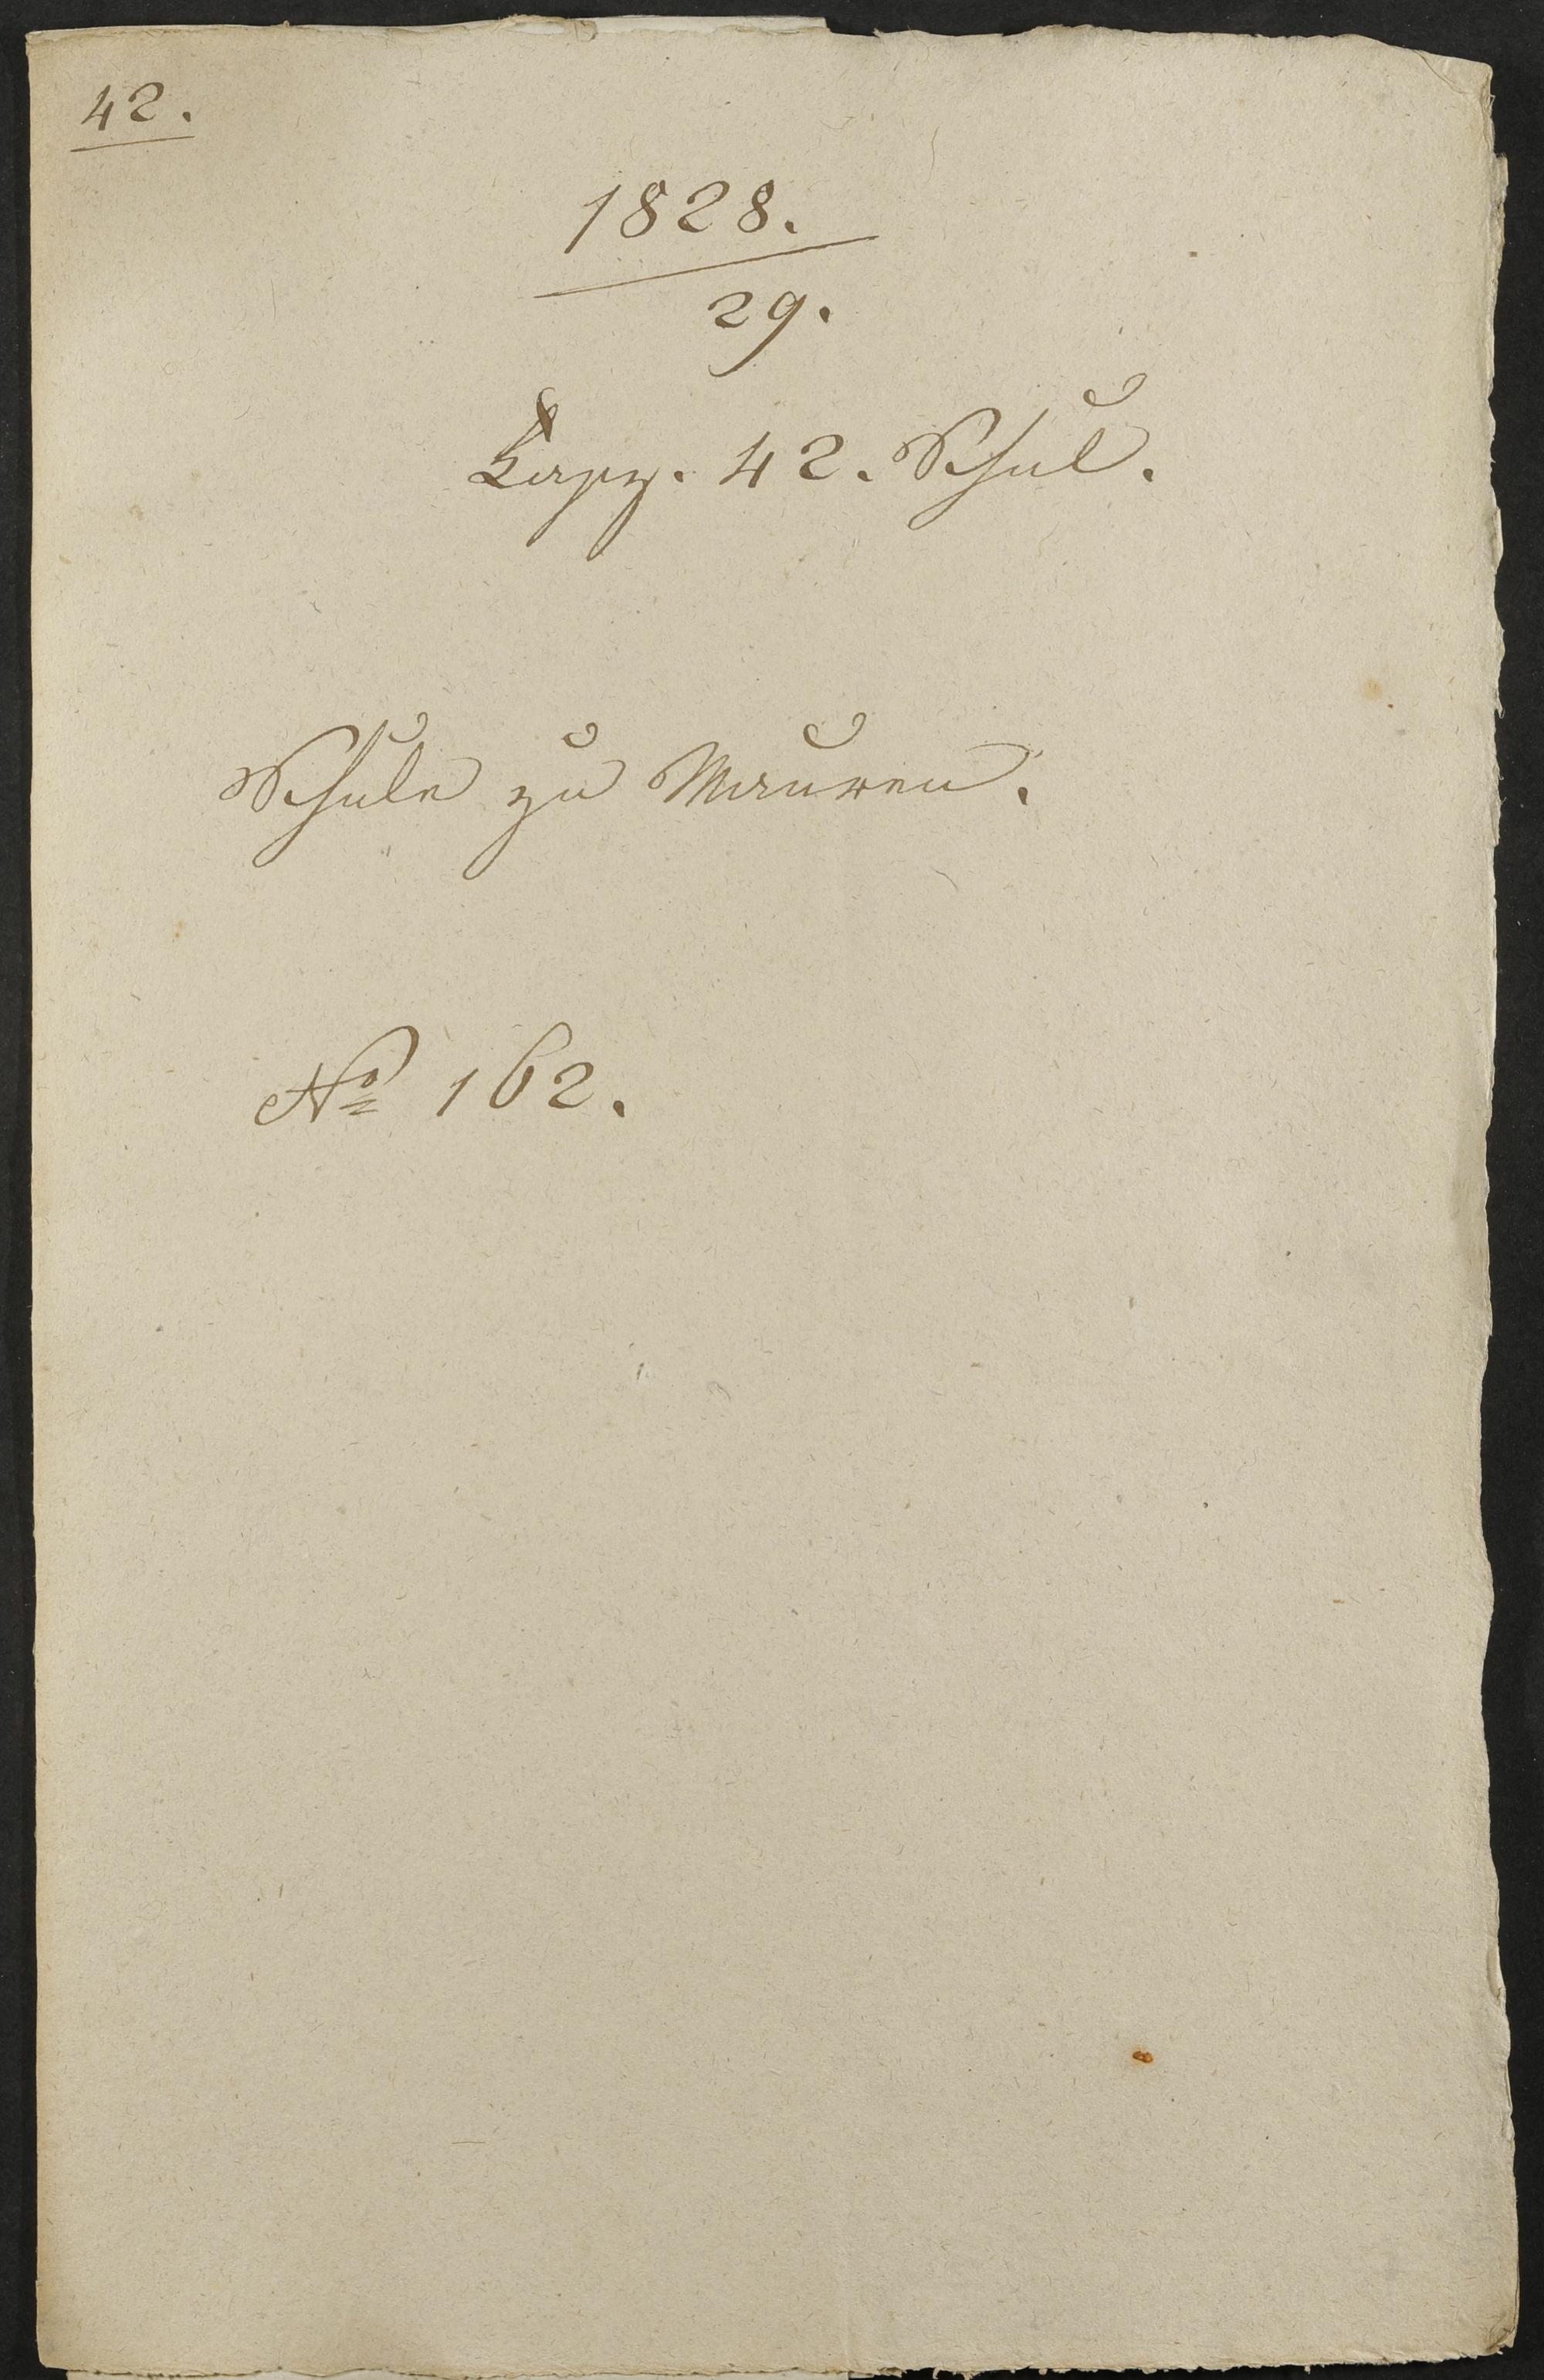 42.
1828.
29.
Kapz. 42. Schul.
Schule zu Mauren.
No 162.